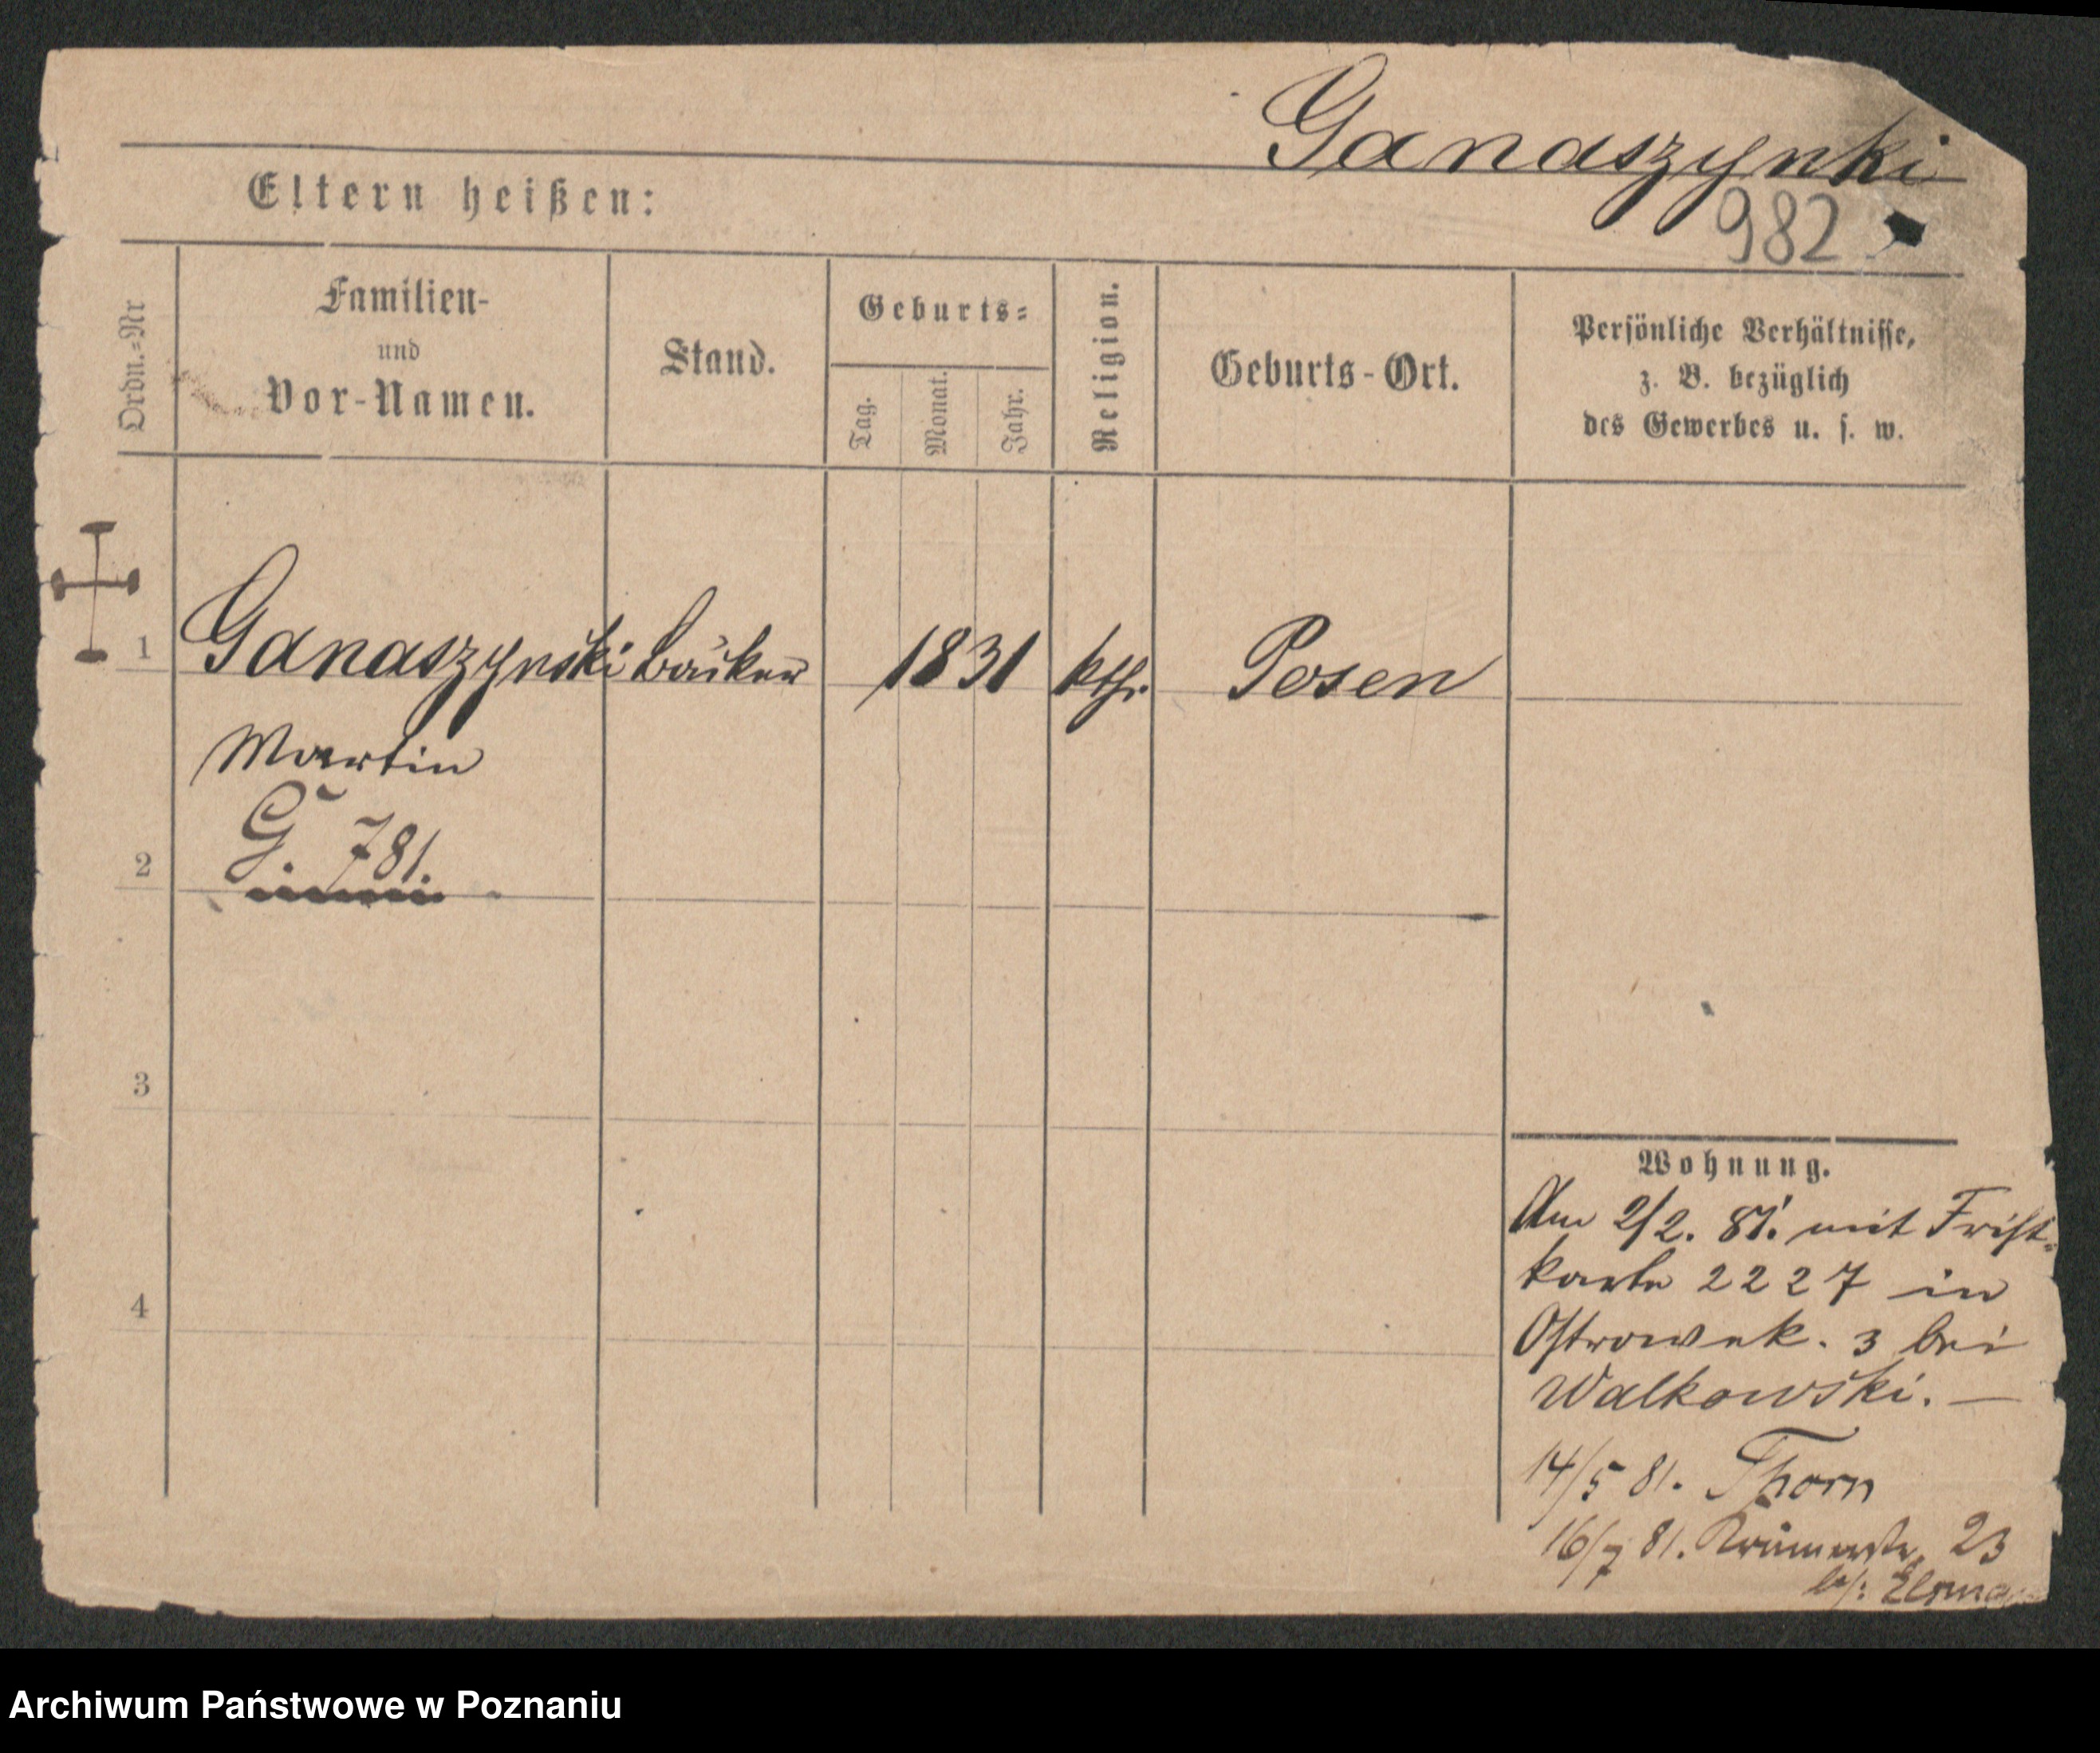 Ganaszynki
Eltern heißen:
982
Ordn.=Nr
Familien-
und
Vor-Namen.
Stand.
Geburts=
Tag.
Monat.
Jahr.
Religion.
Geburts-Ort.
Persönliche Verhältnisse,
z. B. bezüglich
des Gewerbes u. s. w.
1 Ganaszynski Bäcker 1831 kth. Posen
Martin
2 G. 781.
3
Wohnung.
Am 2/2. 81. mit Frist-
karte 2227 in
4
Ostrowek. 3 bei
Walkowski. —
14/5 81. Thorn
16/7 81. Krämerstr. 23
bei
Archiwum Państwowe w Poznaniu